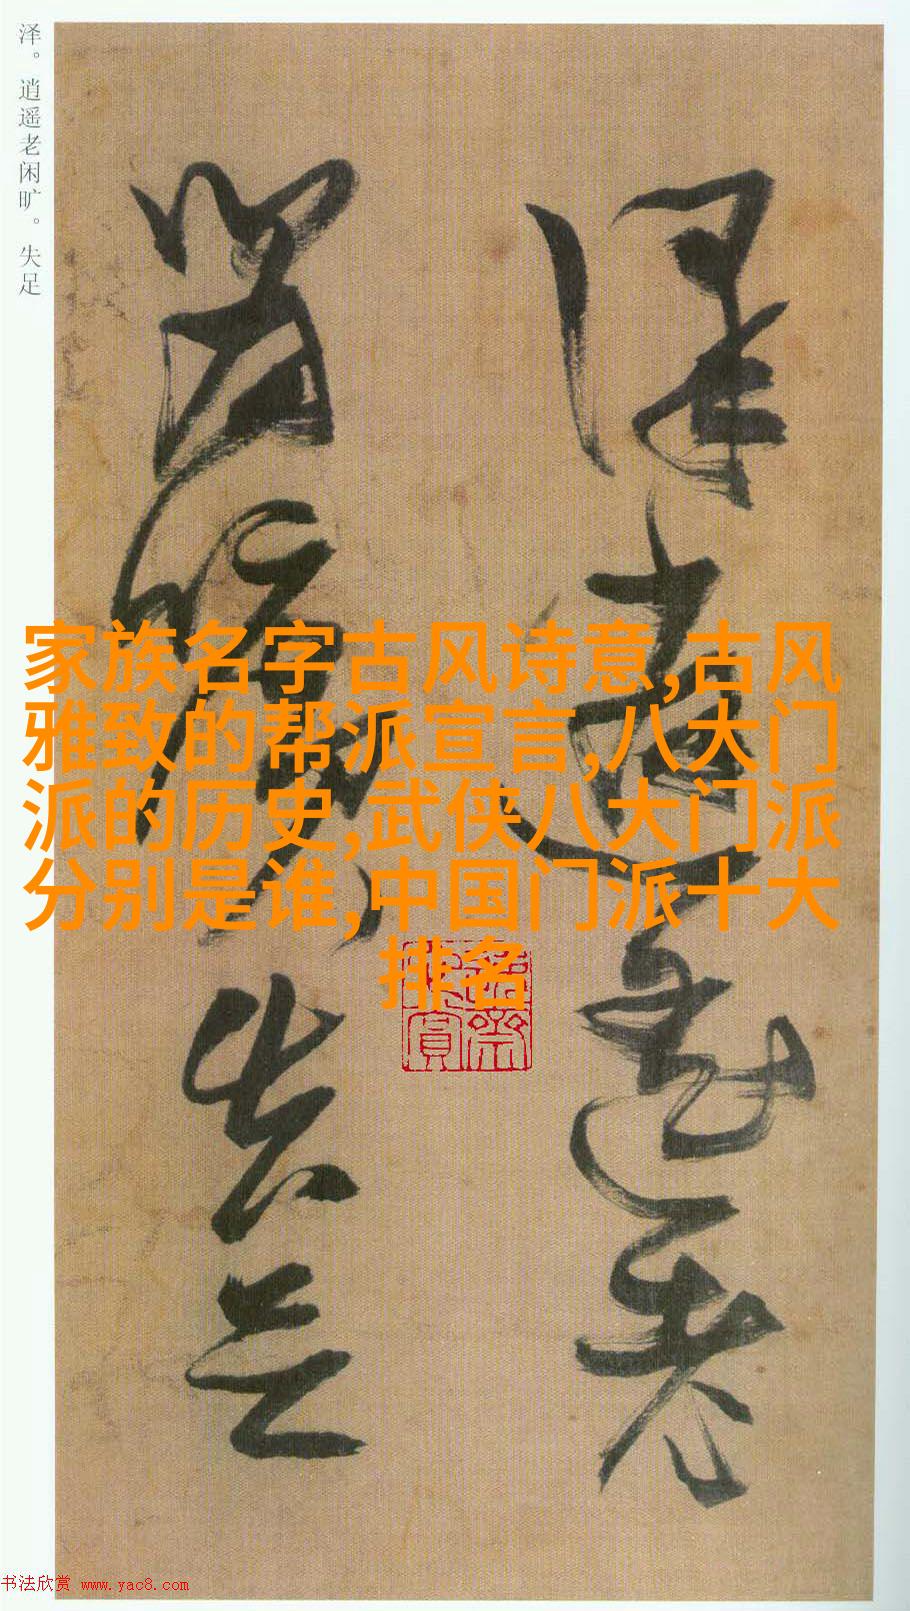 泽。逍遥老闲旷。失足
泽逍遥老
闲旷失足
家族名字古风诗意,古风
雅致的帮派宣言,八大门
派的历史,武侠八大门派
分别是谁,中国门派十大
排名
书法欣赏 www.yac8.com